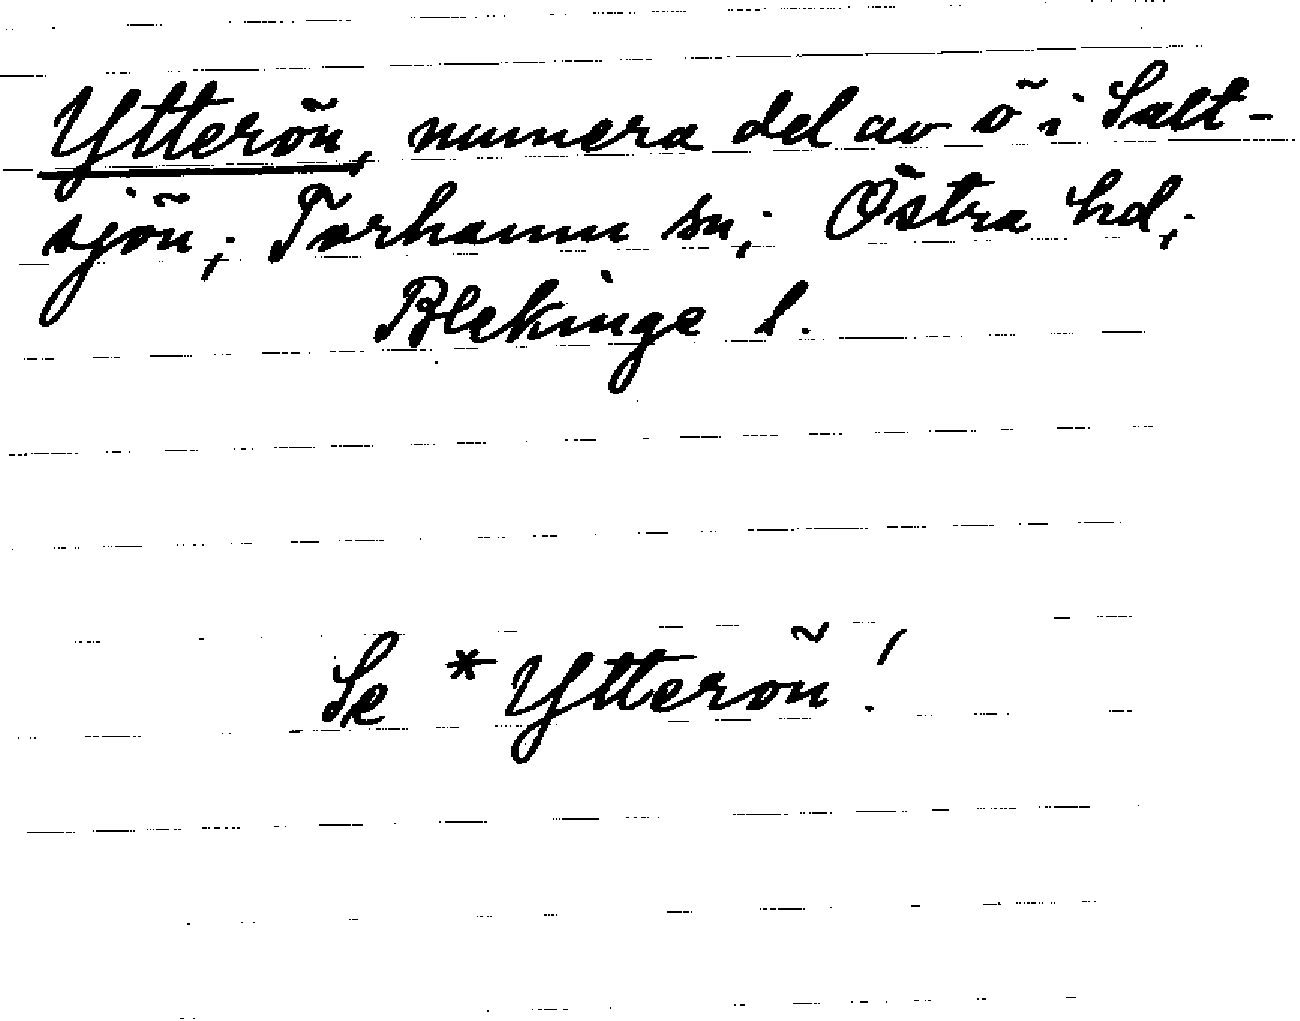 Ytterön, numera del av ö i Salt-
sjön; Torhamn sn; Östra hd;
Blekinge l.
Se *Ytterön!